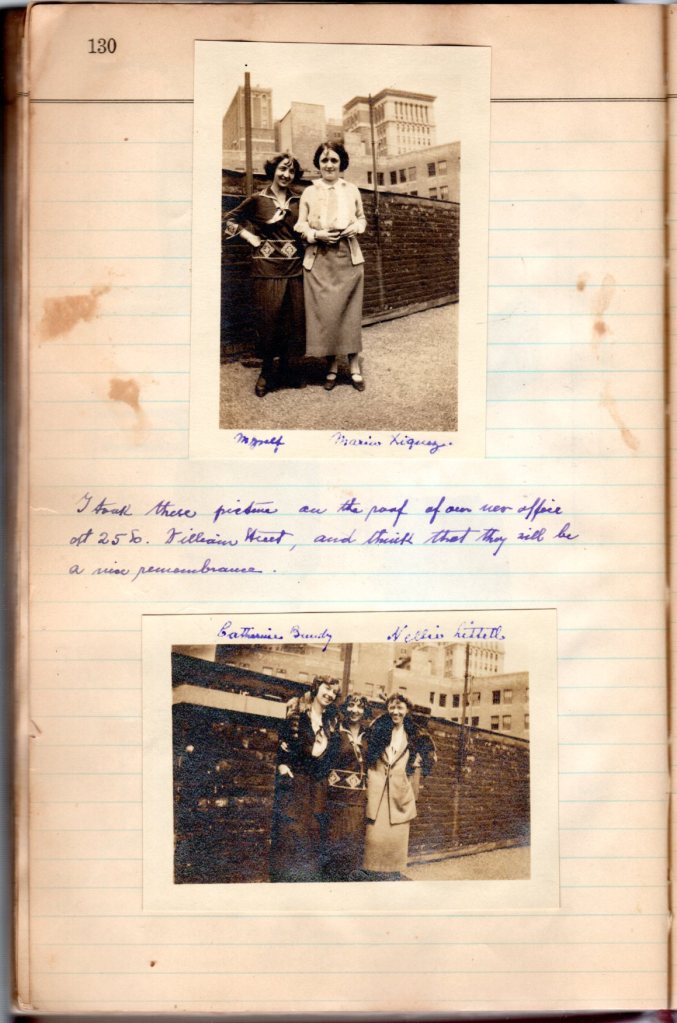 130
Myself Marion
I took these picture on the roof of our new office
at 25 So. William Street, and think that they will be
a nice remembrance.
Catherine Bundy Nellie Littell